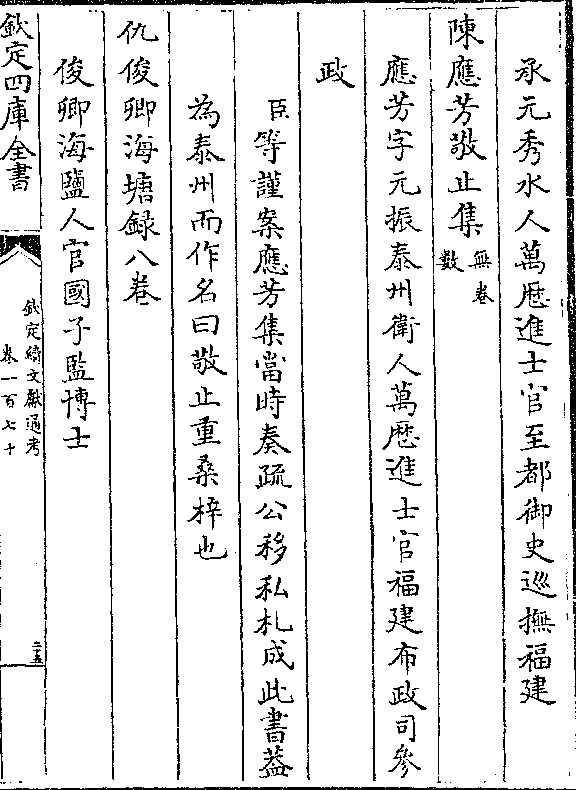 承元秀水人萬厯進士官至都御史巡撫福建
陳應芳敬止集無卷數
應芳字元振泰州衛人萬厯進士官福建布政司參
政
臣等謹案應芳集當時奏疏公移私札成此書葢
為泰州而作名曰敬止重桑梓也
仇俊卿海塘録八卷
俊卿海鹽人官國子監博士
欽定四庫全書
欽定續文獻通考
卷一百七十
二五